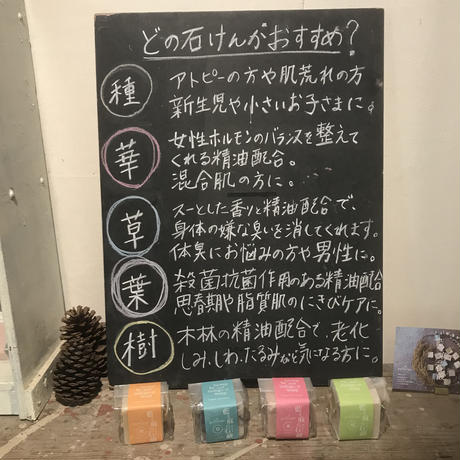 どの石けんがおすすめ?
種
アトピーの方や肌荒れの方
新生児や小さいお子さまに。
華
女性ホルモンのバランスを整えて
くれる精油配合。
混合肌の方に。
草
スーとした香りと精油配合で
身体の嫌な臭いを消してくれます。
体臭にお悩みの方や男性に。
葉
殺菌抗菌作用のある精油配合
思春期や脂質肌のにきびケアに。
樹
木林の精油配合で、老化
しみ、しわ、たるみなど気になる方に。